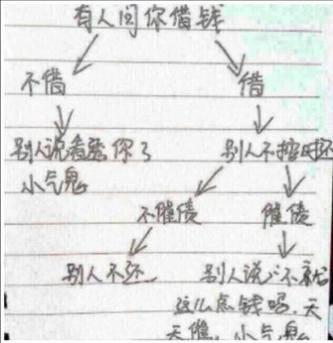 有人问你借钱
不借
借
别人说看透你了
小气鬼
别人不按时还
不催债
催债
别人不还
别人说:不就
这么点钱吗,天
天催,小气鬼